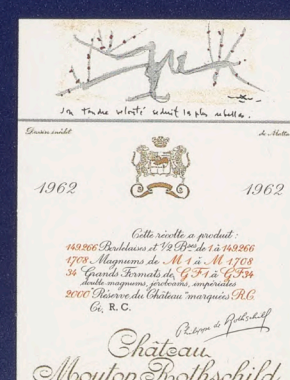 Son tendre velouté séduit la plus rebelle.
Dessin inédit
de Matta
1962
1962
Cette récolte a produit :
149.266 Bordelaises et 1/2 Bses de 1 à 149.266
1708 Magnums de M 1 à M 1708
34 Grands Formats de G F 1 à G F 34
double magnums, jéroboams, impériales
2000 Réserve du Château marquées R.C.
Ci, R.C.
Philippe de Rothschild
Château
Mouton Rothschild